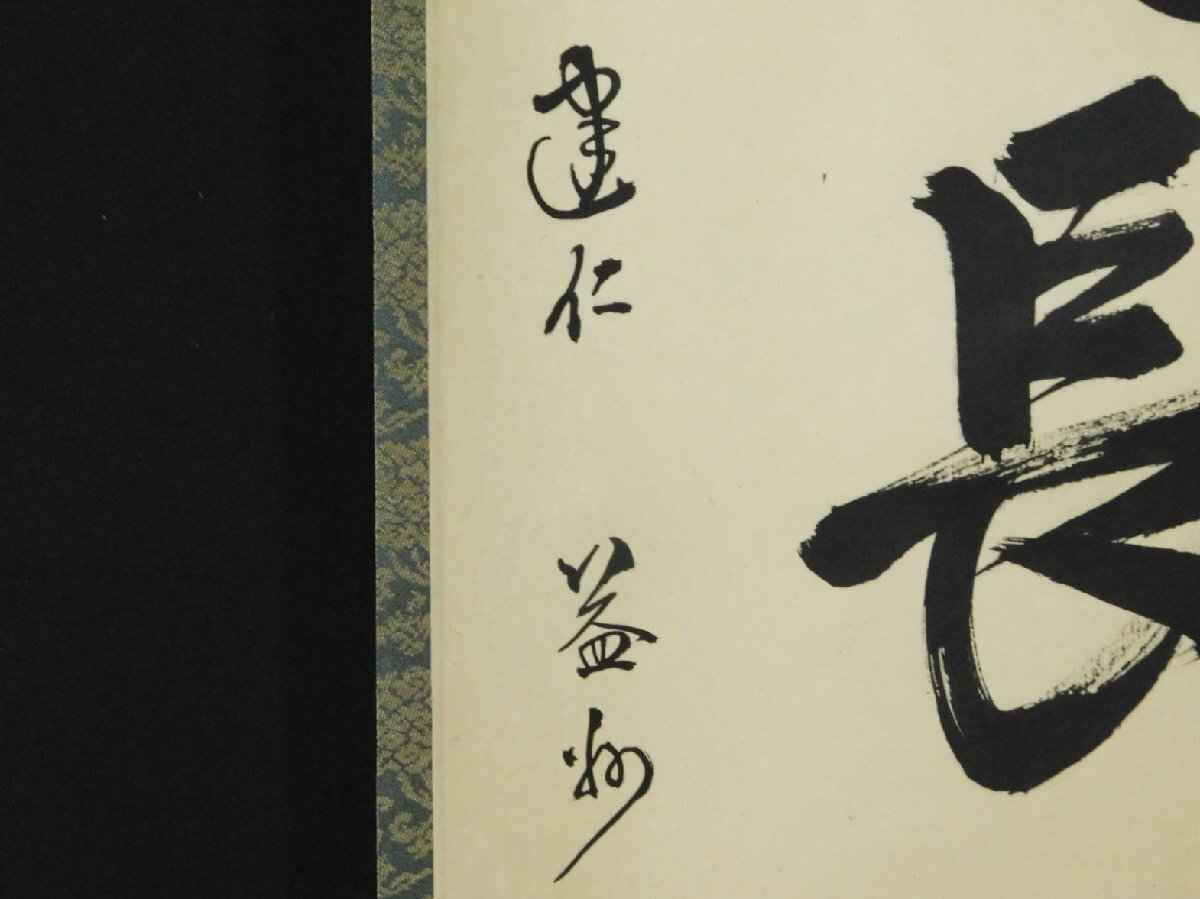 長
建仁 益州